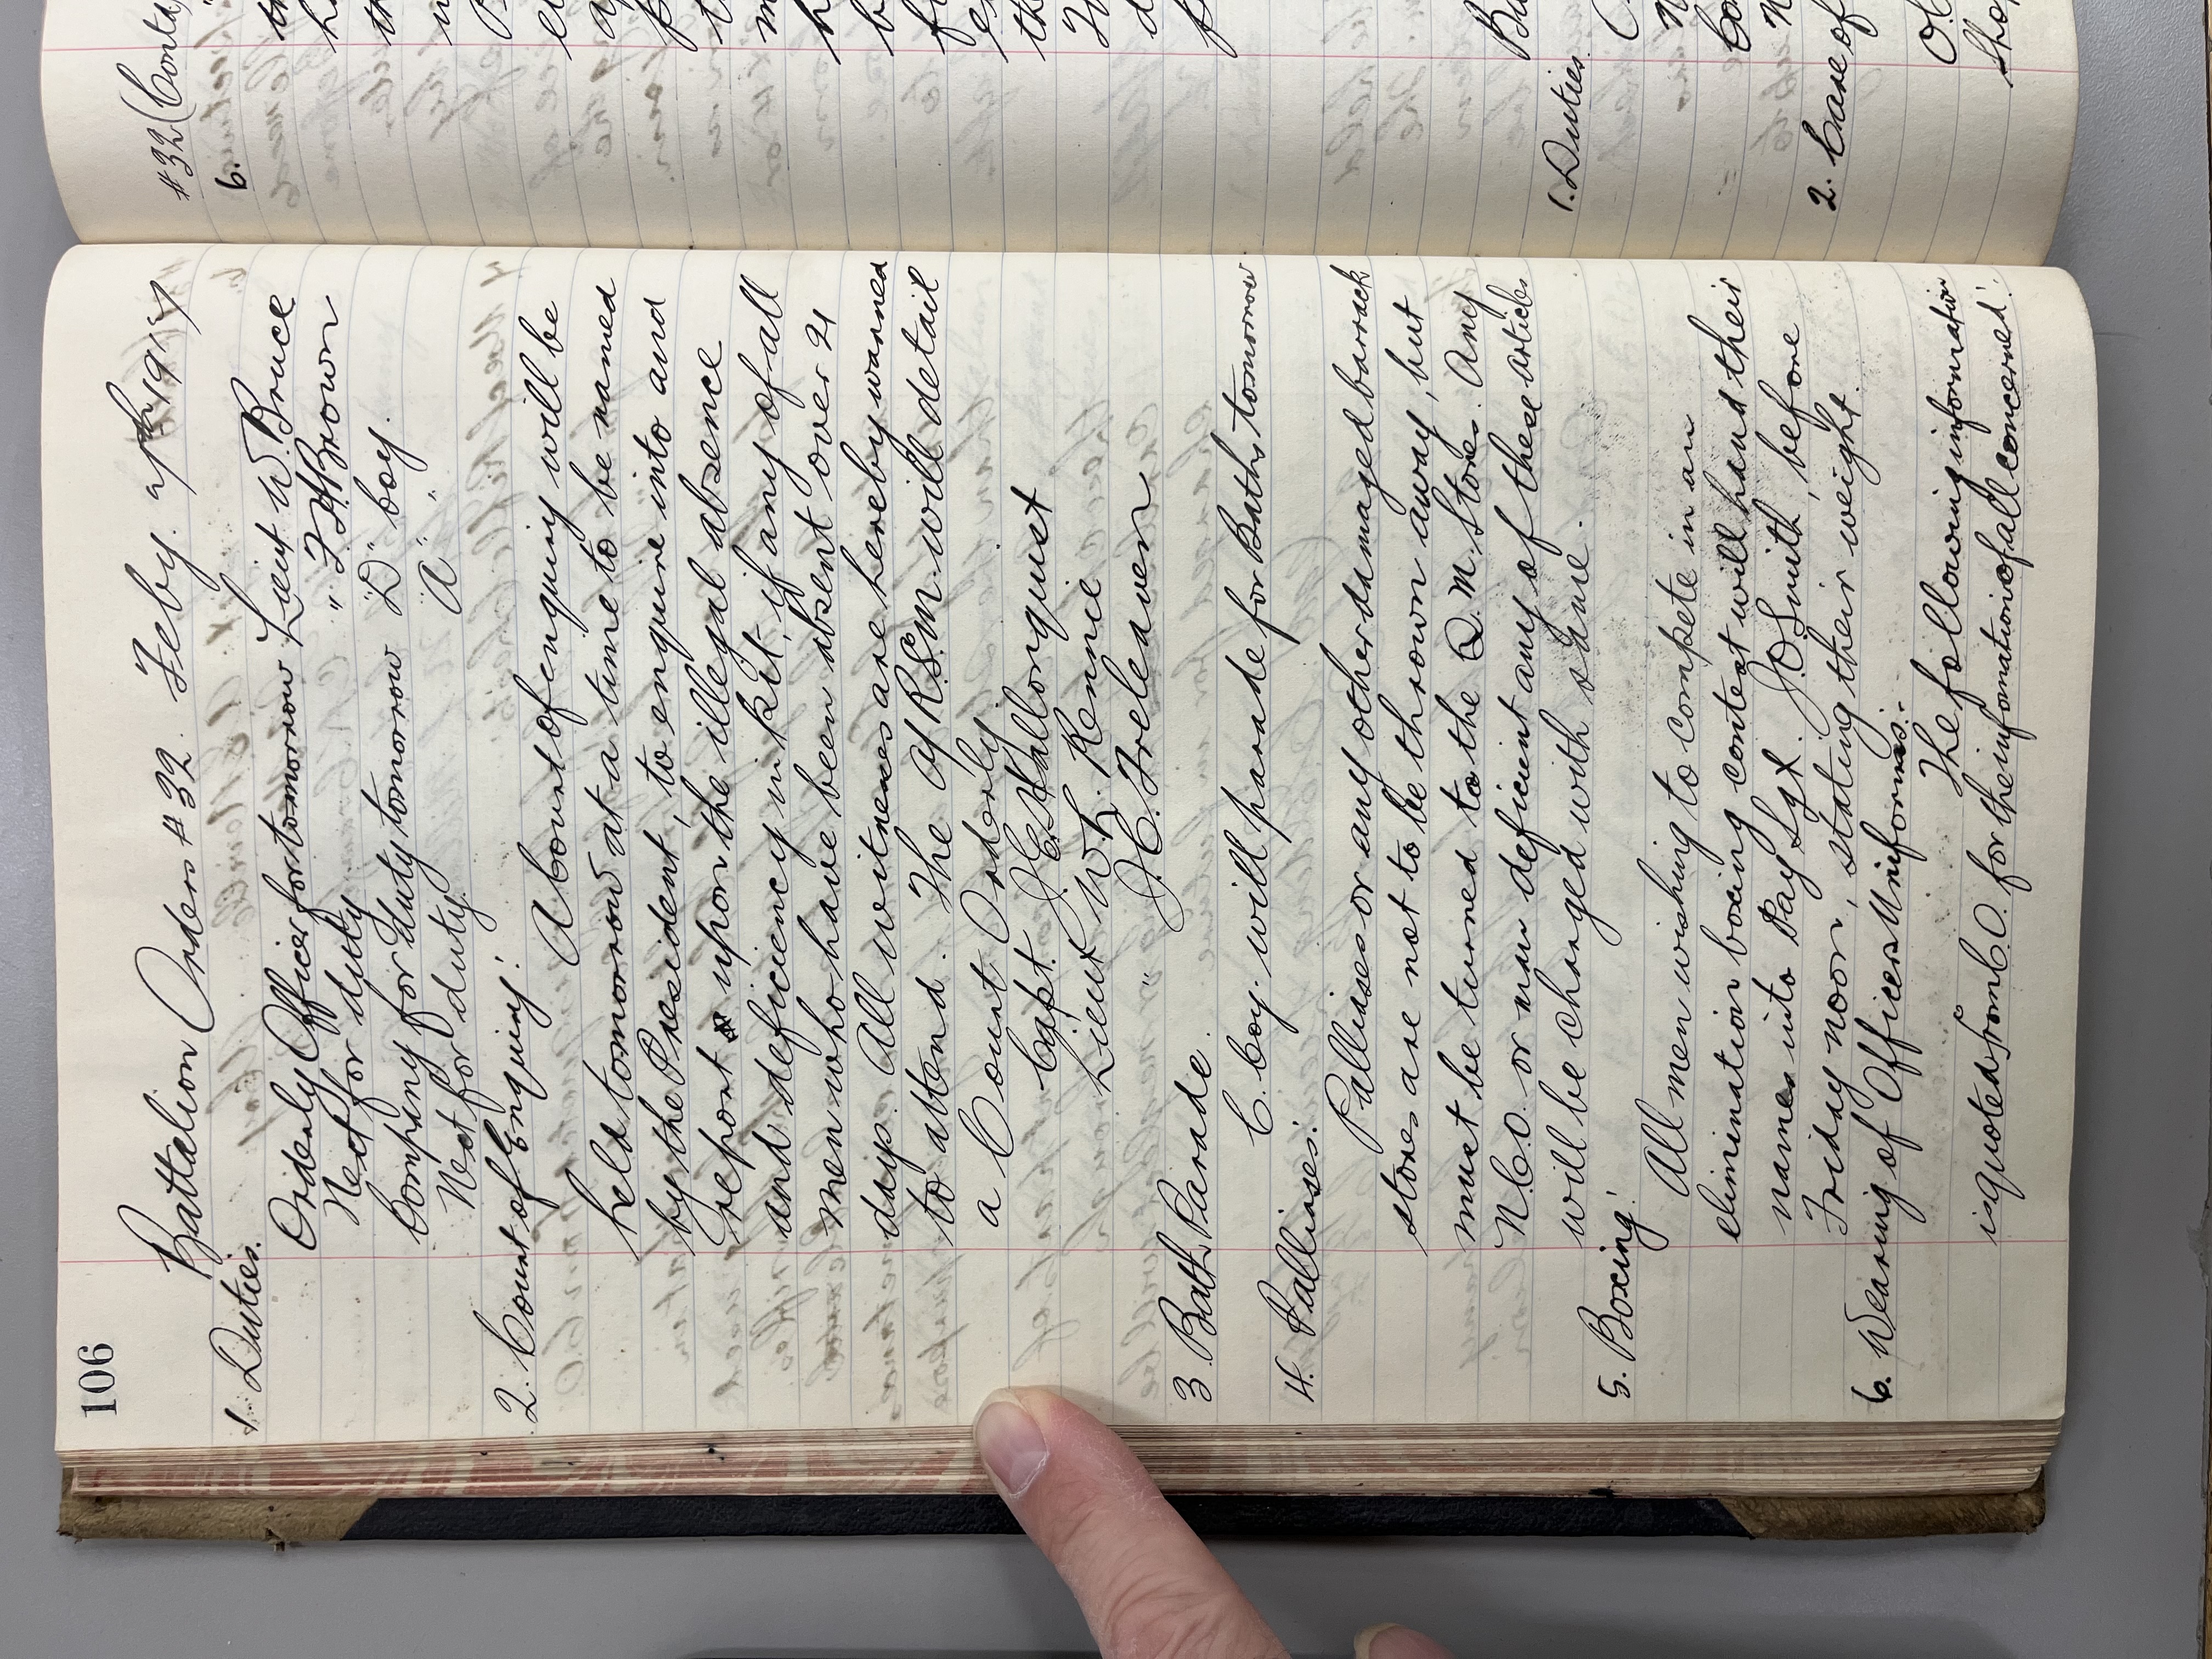 106
Battalion Orders # 32. Feby. 7th 1917
1. Duties.
Orderly Officer for tomorrow Lieut W. Bruce
Next for duty " F.H. Brown
Company for duty tomorrow "D" Coy.
Next for duty "A" "
2. Court of Enquiry:
A Court of enquiry will be
held tomorrow at a time to be named
by the President, to enquire into and
report upon the illegal absence
and deficiency in kit, if any of all
men who have been absent over 21
days. All witnesses are hereby warned
to attend. The A/R.S.M. will detail
a Court Orderly.
Capt. J.E. Hallonquist
Lieut W.L. Rennie
" J.C. Treleaven
3 Bath Parade.
C. Coy. will parade for Baths tomorrow
4. Palliasses:
Palliasses or any other damaged barrack
stores are not to be thrown away, but
must be turned to the Q.M. Stores. Any
N.C.O. or man deficient any of these articles
will be charged with same.
5. Boxing:
All men wishing to compete in an
elimination boxing contest will hand their
names into Pay Sgt. J.O. Smith, before
Friday noon, stating their weight.
6. Wearing of Officers Uniforms:-
The following information
is quoted from C.O. for the information of all concerned:
# 32 (Contd
6.
1. Duties
2. Care of